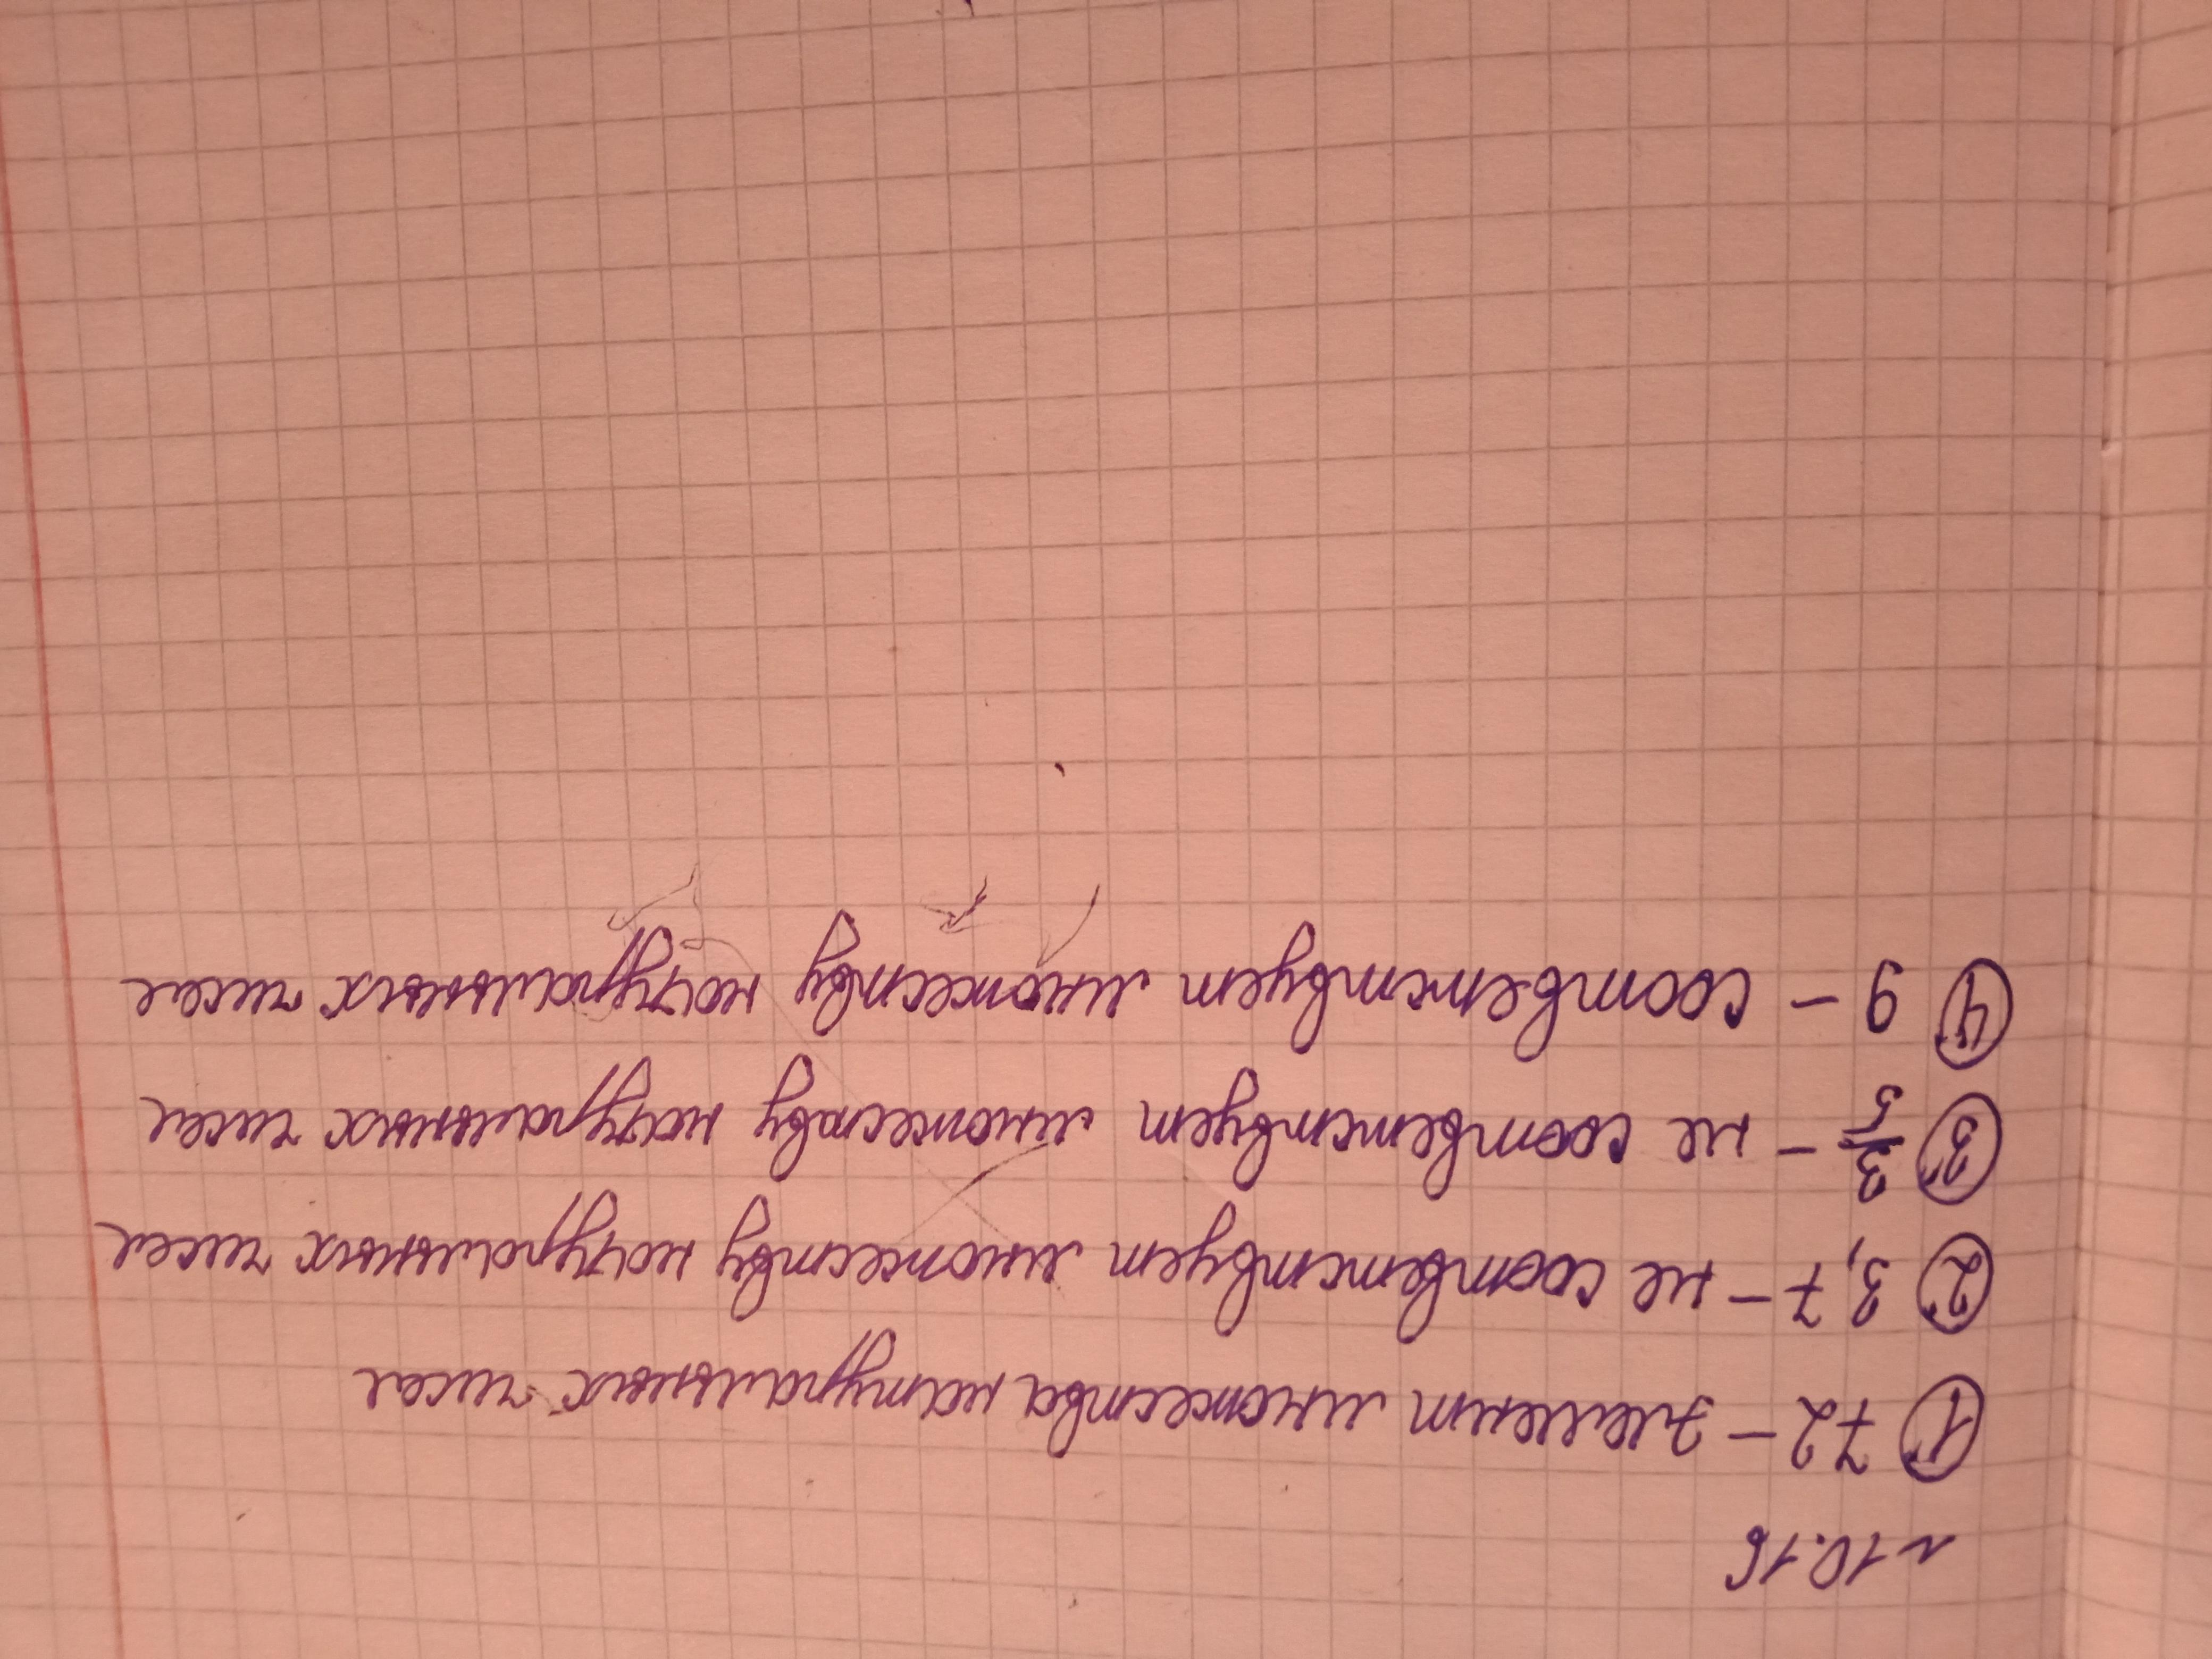 ~ 10.16
① 72 - элемент множества натуральных чисел
② 3,7 - не соответствует множеству натуральных чисел
③ 3/5 - не соответствует множеству натуральных чисел
④ 9 - соответствует множеству натуральных чисел